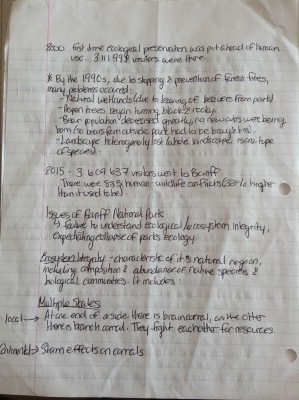 2000 first time ecological preservation was put ahead of human
use. 3 111 998 visitors were there
* By the 1990s, due to stopping & prevention of forest fires,
many problems occured:
- Natural wetlands (due to leaving of beavers from park)
- Aspen trees began turning black & rocky
- Bear population decreased greatly, no new cubs were being
born (so bears from outside park had to be brought in).
- Landscape heterogeneity lost (whole landscape, same type
of species)
2015 - 3 609 637 visitors went to Banff
There were human-wildlife conflicts ( higher
than it used to be)
Issues of Banff National Park
failure to understand ecological/ecosystem integrity,
expediating collapse of parks ecology
Ecosystem Integrity - characteristic of it's natural region,
including composition & abundance of native species &
biological communities. It includes:
Multiple Scales
local → At one end of a side there is brain corral, on the other
there is branch corral. They fight eachother for resources.
→ Storm effects on corrals